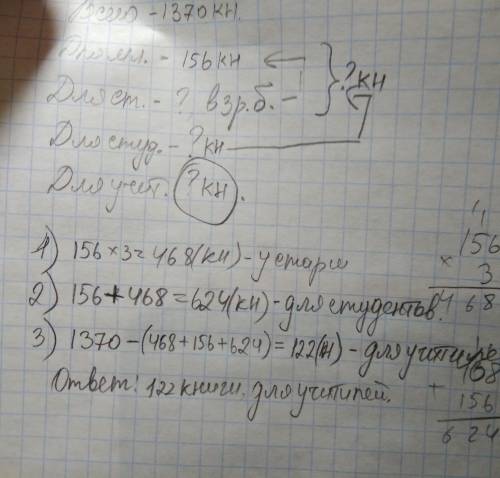 Всего - 1370 кн.
Для мл. - 156 кн
Для ст. - ?, в 3 р. б. -
? кн
Для студ. - ? кн
Для учит. ? кн.
1) 156 × 3 = 468 (кн) - у старш
2) 156 + 468 = 624 (кн) - для студентов.
3) 1370 - (468 + 156 + 624) = 122 (кн) - для учителей
Ответ: 122 книги для учителей.
156
× 3
468
468
+ 156
624